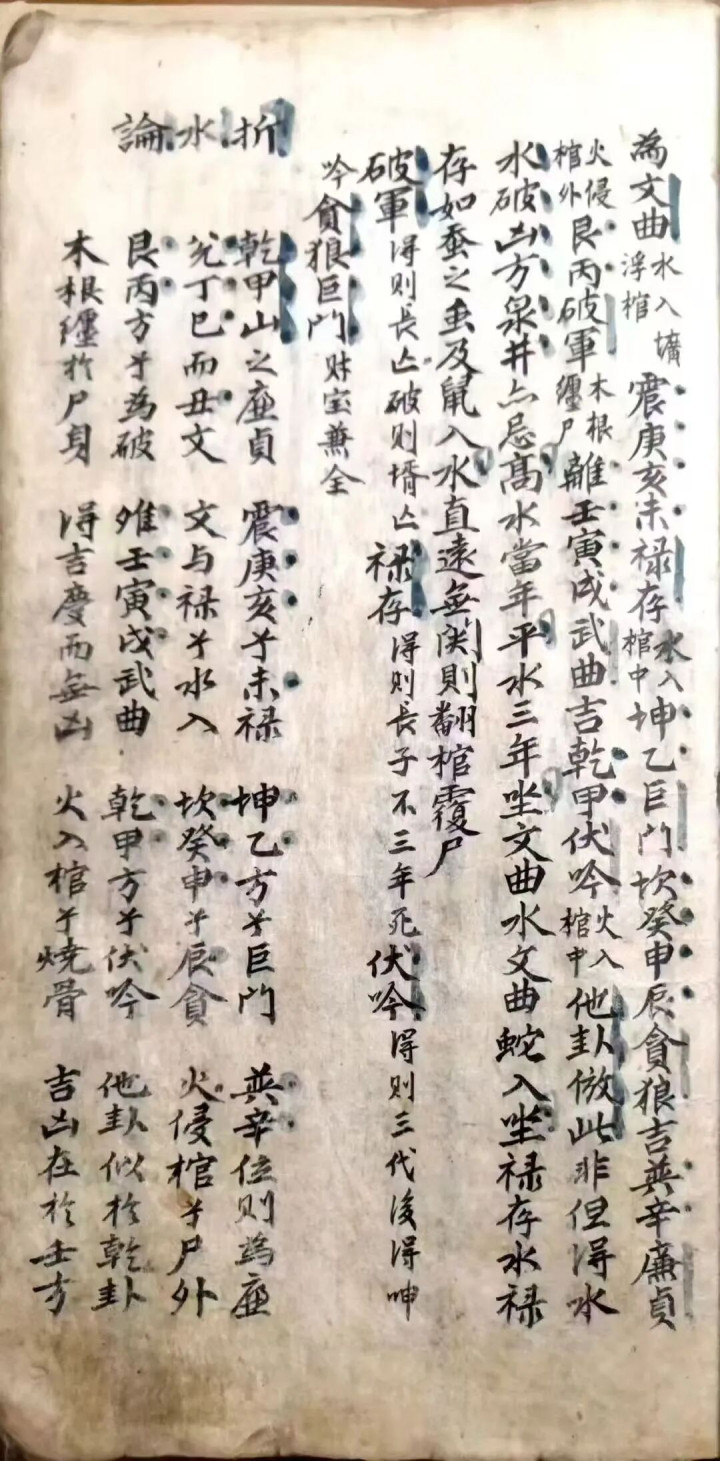 為文曲水入壙浮棺震庚亥未禄存水入棺中坤乙巨門坎癸申辰貪狼吉巽辛廉貞
火侵棺外艮丙破軍木根纏尸離壬寅戌武曲吉乾甲伏吟火入棺中他卦倣此非但得水
水破凶方泉井亦忌高水當年平水三年坐文曲水文曲蛇入坐禄存水禄
存如蚕之虫及鼠入水直遠無関則翻棺覆尸
破軍得則長亡破則壻亡禄存得則長子不三年死伏吟得則三代後得呻
吟貪狼巨门财宝兼全
折水論
乾甲山之廉貞 震庚亥兮未禄 坤乙方兮巨門 巽辛位則為廉
兌丁巳而丑文 文与禄兮水入 坎癸申兮辰貪 火侵棺兮尸外
艮丙方兮為破 难壬寅戌武曲 乾甲方兮伏吟 他卦似於乾卦
木根纏於尸身 得吉慶而無凶 火入棺兮燒骨 吉凶在於壬方